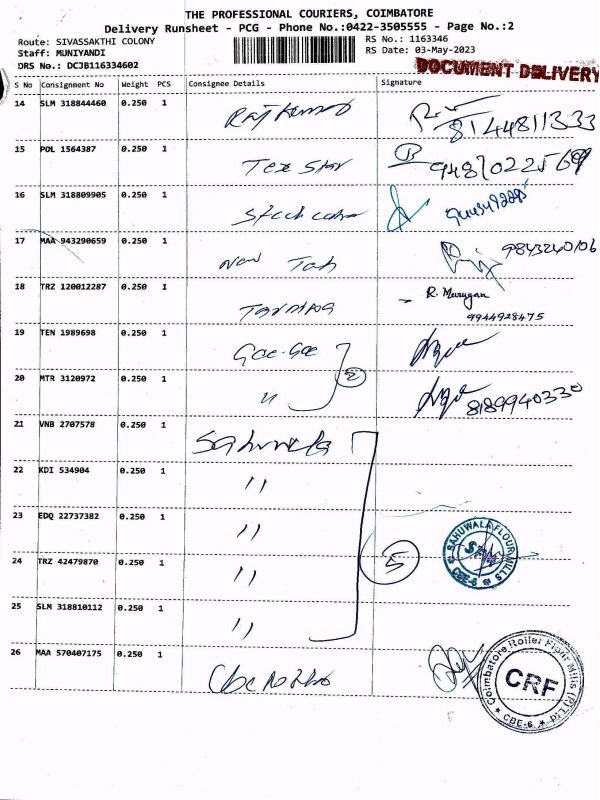 THE PROFESSIONAL COURIERS, COIMBATORE
Delivery Runsheet - PCG - Phone No.:0422-3505555 - Page No.:2
Route: SIVASSAKTHI COLONY
RS No.: 1163346
Staff: MUNIYANDI
RS Date: 03-May-2023
DRS No.: DCJB116334602
DOCUMENT DELIVERY
S No Consignment No Weight PCS Consignee Details Signature
14 SLM 318844460 0.250 1
8144811333
15 POL 1564387 0.250 1 Tex Star
16 SLM 318809905 0.250 1
17 MAA 943290659 0.250 1 New
9843240106
18 TRZ 120012287 0.250 1 R. Murugan
9944928475
19 TEN 1989698 0.250 1 Gae-Gae
20 MTR 3120972 0.250 1 " 2
8189940330
21 VNB 2707578 0.250 1
22 KDI 534904 0.250 1 "
23 EDQ 22737382 0.250 1 "
24 TRZ 42479870 0.250 1 " 5
SAHUWALA FLOUR MILLS
CBE-6
25 SLM 318810112 0.250 1 "
26 MAA 570407175 0.250 1
Coimbatore Roller Flour Mills (P) LTD
CRF
CBE-6